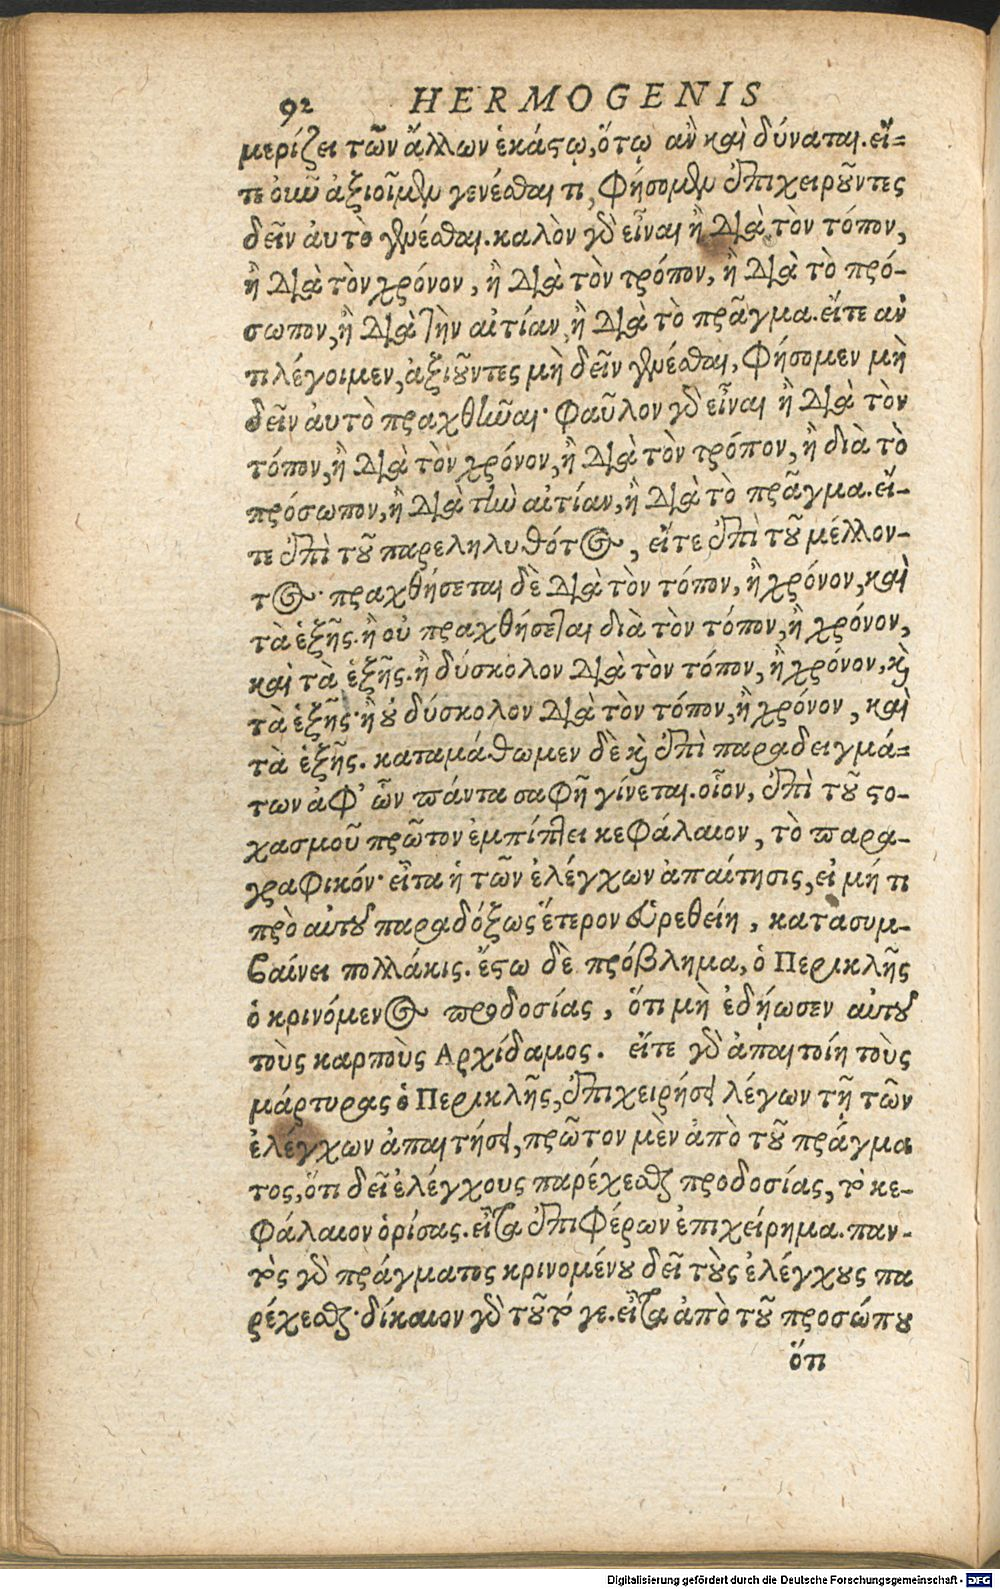 92 HERMOGENIS
μερίζει τῶν ἄλλων ἑκάστῳ, ὅτῳ ἂν καὶ δύναται. εἴ=
τε οὖν ἀξιοῖμεν γενέσθαι τι, φήσομεν ἐπιχειροῦντες
δεῖν ἀυτὸ γενέσθαι. καλὸν γὸ εἶναι ἢ διὰ τὸν τόπον,
ἢ διὰ τὸν χρόνον, ἢ διὰ τὸν τρόπον, ἢ διὰ τὸ πρό-
σωπον, ἢ διὰ τὴν αἰτίαν, ἢ διὰ τὸ πρᾶγμα. εἴτε αὖ
τι λέγοιμεν, ἀξιοῦντες μὴ δεῖν γενέσθαι, φήσομεν μὴ
δεῖν ἀυτὸ πραχθῆναι· φαῦλον γὸ εἶναι ἢ διὰ τὸν
τόπον, ἢ διὰ τὸν χρόνον, ἢ διὰ τὸν τρόπον, ἢ διὰ τὸ
πρόσωπον, ἢ διὰ τὴν αἰτίαν, ἢ διὰ τὸ πρᾶγμα. εἴ-
τε ἐπὶ τοῦ παρεληλυθότος, εἴτε ἐπὶ τοῦ μέλλον-
τος· πραχθήσεται δὲ διὰ τὸν τόπον, ἢ χρόνον, καὶ
τὰ ἑξῆς. ἢ οὐ πραχθήσεται διὰ τὸν τόπον, ἢ χρόνον,
καὶ τὰ ἑξῆς. ἢ δύσκολον διὰ τὸν τόπον, ἢ χρόνον, κὶ
τὰ ἑξῆς· ἢ οὐ δύσκολον διὰ τὸν τόπον, ἢ χρόνον, καὶ
τὰ ἑξῆς. καταμάθωμεν δὲ κὶ ἐπὶ παραδειγμά=
των ἀφ' ὧν πάντα σαφῆ γίνεται. οἷον, ἐπὶ τοῦ στο-
χασμοῦ πρῶτον ἐμπίπτει κεφάλαιον, τὸ παρα-
γραφικόν· εἶτα ἡ τῶν ἐλέγχων ἀπαίτησις, εἰ μή τι
πρὸ αὐτοῦ παραδόξως ἕτερον εὑρεθείη, κατασυμ-
βαίνει πολλάκις. ἔστω δὲ πρόβλημα, ὁ Περικλῆς
ὁ κρινόμενος προδοσίας, ὅτι μὴ ἐδῄωσεν αὐτοῦ
τοὺς καρποὺς Αρχίδαμος. εἴτε γὸ ἀπαιτοίη τοὺς
μάρτυρας ὁ Περικλῆς, ἐπιχειρήσει λέγων τῇ τῶν
ἐλέγχων ἀπαιτήσει, πρῶτον μὲν ἀπὸ τοῦ πράγμα
τος, ὅτι δεῖ ἐλέγχους παρέχεσθαι προδοσίας, τὸ κε-
φάλαιον ὁρίσας. εἶτα ἐπιφέρων ἐπιχείρημα. παν-
τὸς γὸ πράγματος κρινομένου δεῖ τοὺς ἐλέγχους πα
ρέχεσθαι· δίκαιον γὸ τοῦτό γε. εἶτα ἀπὸ τοῦ προσώπου
ὅτι
Digitalisierung gefördert durch die Deutsche Forschungsgemeinschaft - DFG